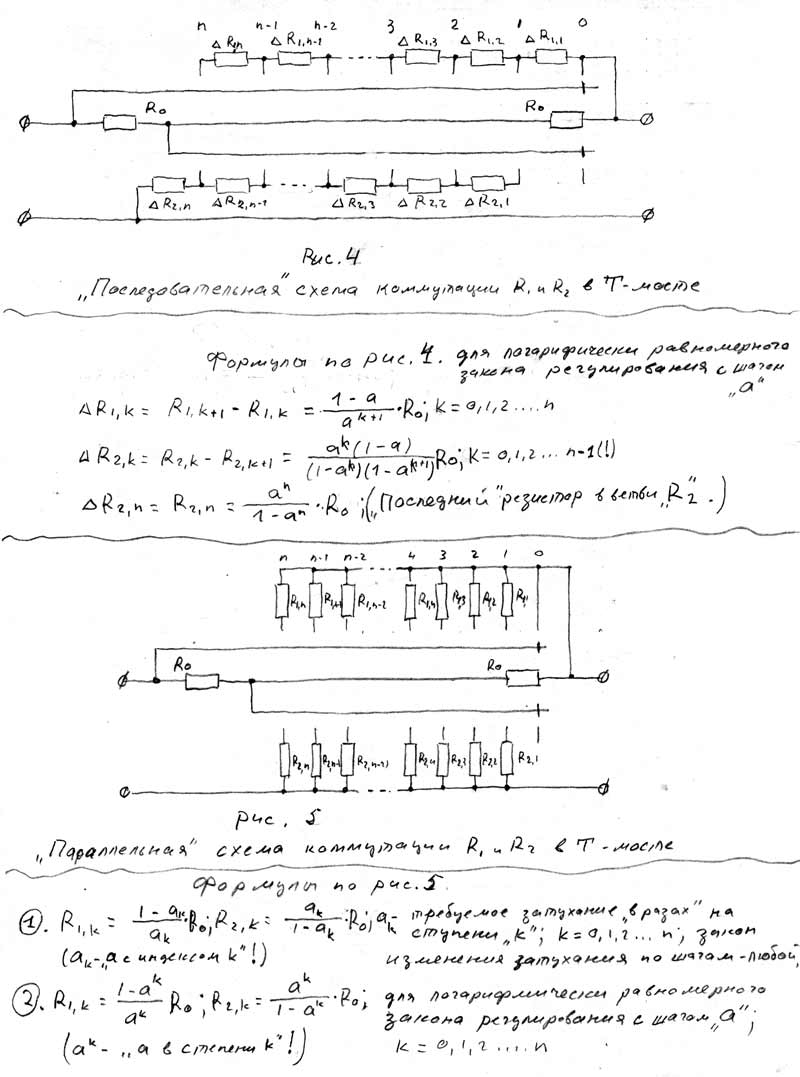 n n-1 n-2 3 2 1 0
ΔR1n ΔR1,n-1 ΔR1,3 ΔR1,2 ΔR1,1
R0 R0
ΔR2,n ΔR2,n-1 ΔR2,3 ΔR2,2 ΔR2,1
Рис. 4
„Последовательная" схема коммутации R1 и R2 в Т-мосте
Формулы по рис. 4. для логарифически равномерного
закона регулирования с шагом
„a"
ΔR1,k = R1,k+1 - R1,k = (1-a)/(a^(k+1)) · R0; k = 0,1,2....n
ΔR2,k = R2,k - R2,k+1 = (a^k(1-a))/((1-a^k)(1-a^(k+1))) R0; K = 0,1,2... n-1(!)
ΔR2,n = R2,n = (a^n)/(1-a^n) · R0; („Последний" резистор в ветви „R2".)
n n-1 n-2 4 3 2 1 0
R1,n R1,n-1 R1,n-2 R1,4 R1,3 R1,2 R1,1
R0 R0
R2,n R2,n-1 R2,n-2 R2,4 R2,3 R2,2 R2,1
рис. 5
„Параллельная" схема коммутации R1 и R2 в Т-мосте
Формулы по рис. 5.
①. R1,k = (1-a_k)/(a_k) · R0; R2,k = (a_k)/(1-a_k) · R0; a_k - требуемое затухание „в разах" на
ступени „k"; k = 0,1,2... n; закон
(a_k - „a с индексом k"!) изменения затухания по шагам - любой;
②. R1,k = (1-a^k)/(a^k) R0; R2,k = (a^k)/(1-a^k) · R0; для логарифмически равномерного
закона регулирования с шагом „a";
(a^k - „a в степени k"!) k = 0,1,2....n